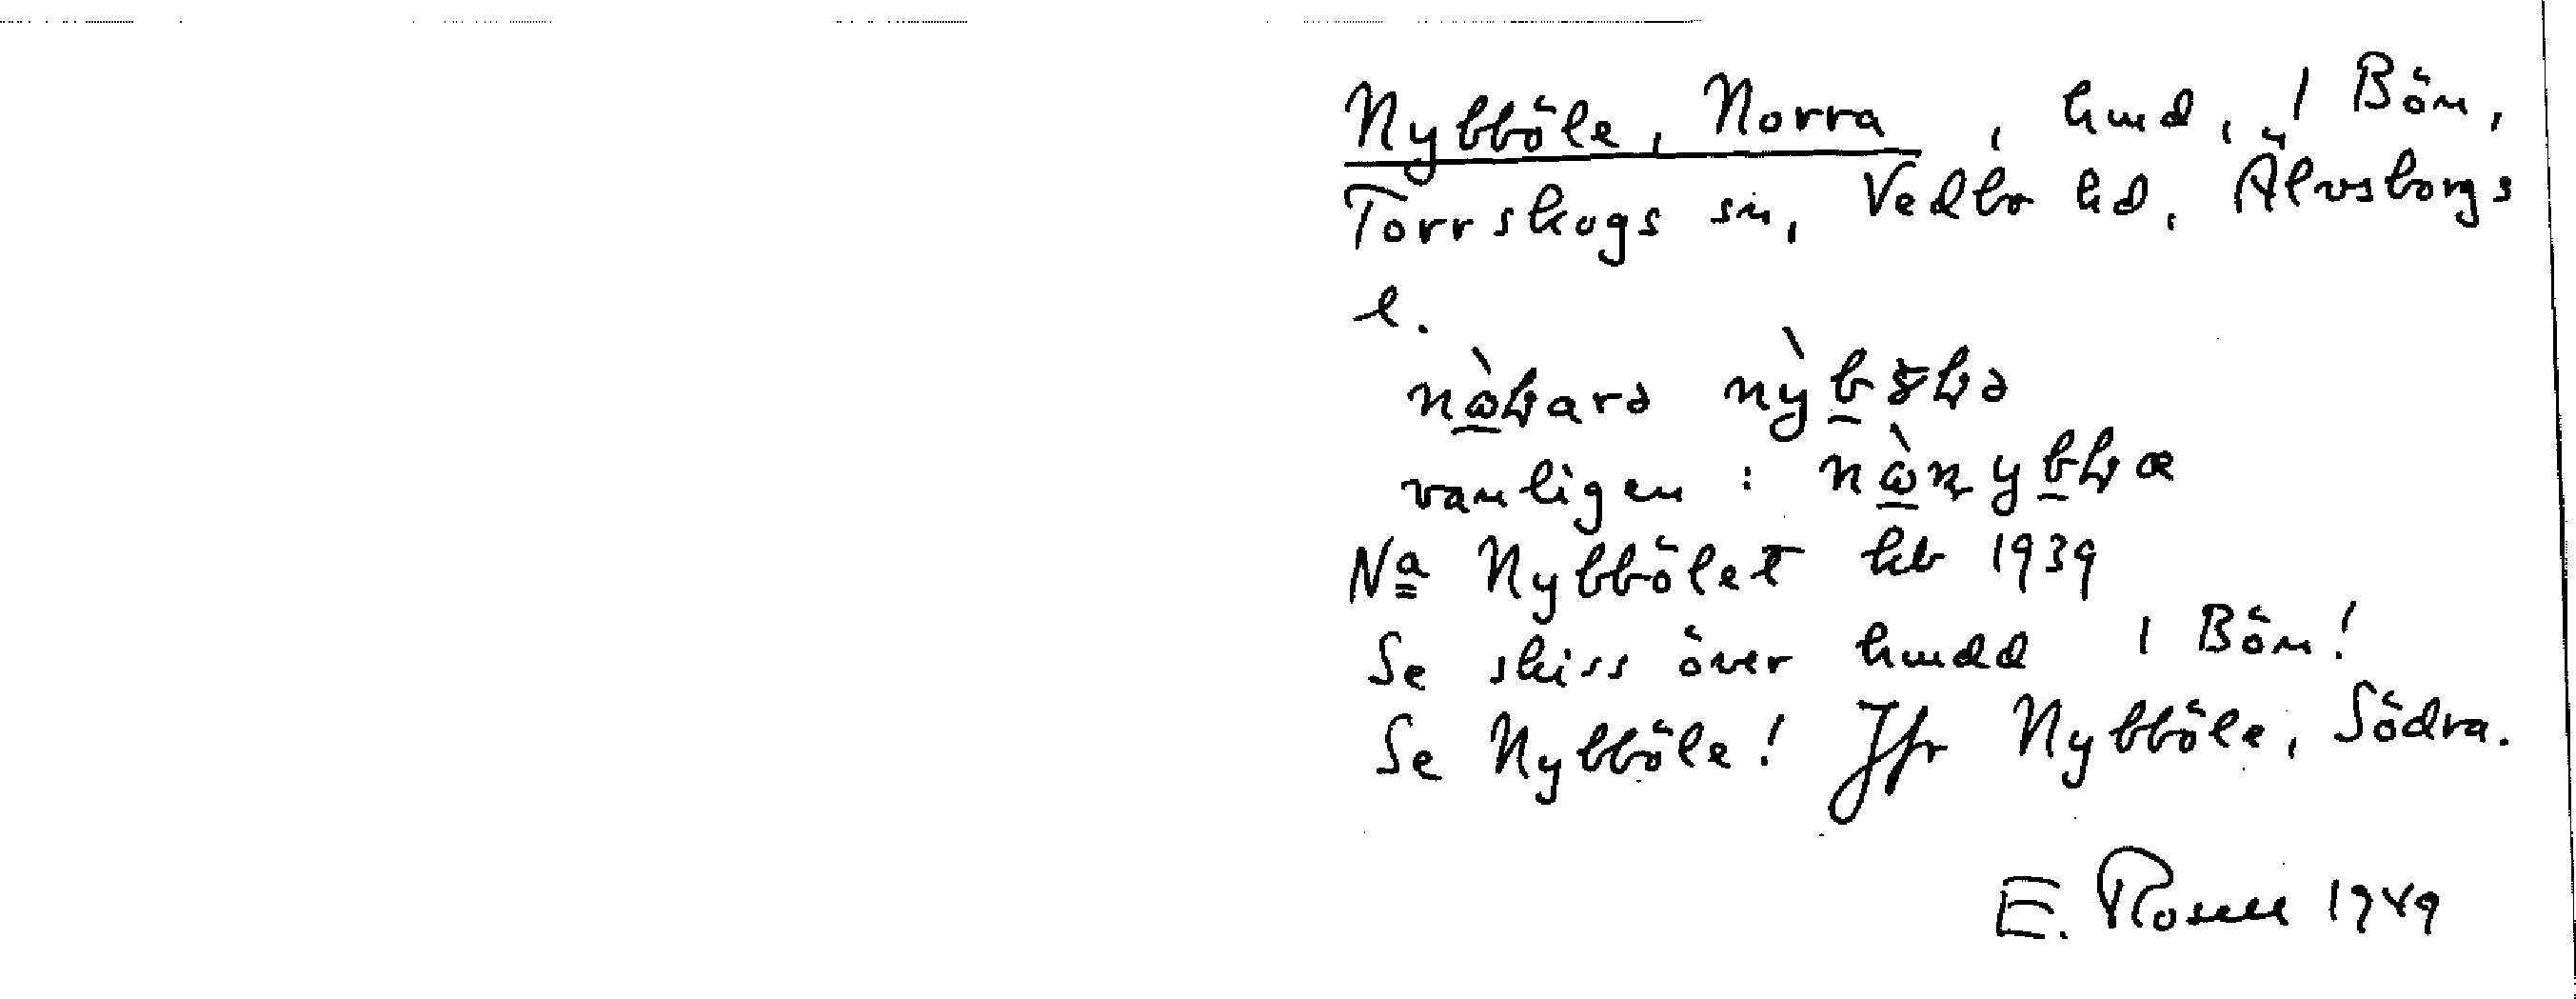 Nybböle, Norra, hmd, 1 Bön,
Torrskogs sn, Vedbo hd, Älvsborgs
l.
vanligen:
Na Nybbölet hb 1939
Se skiss över hmdd 1 Bön!
Se Nybböle! Jfr Nybböle, Södra.
E. Rosell 1949